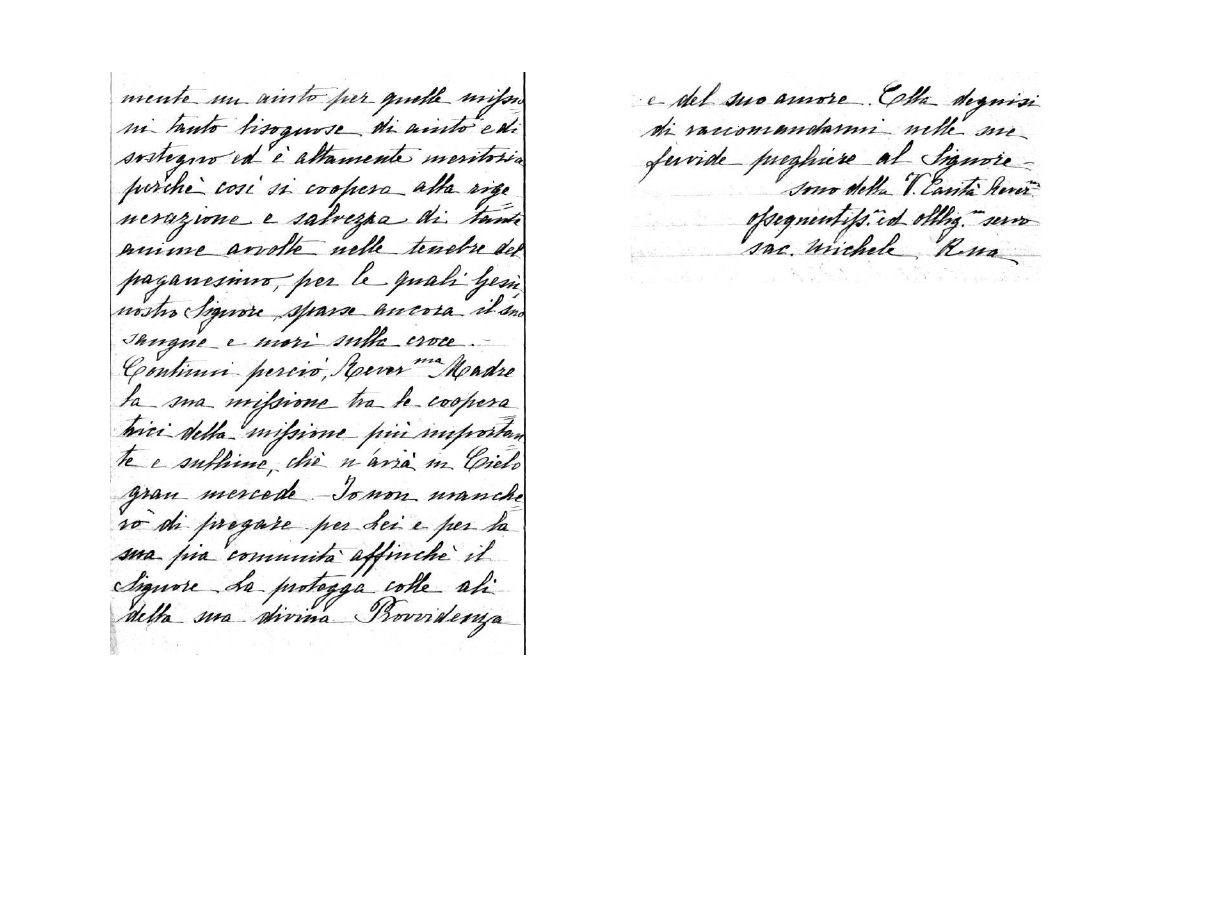 mente un aiuto per quelle missio
ni tanto bisognose di aiuto e di
sostegno ed è altamente meritoria
perchè così si coopera alla rige
nerazione e salvezza di tante
anime avvolte nelle tenebre del
paganesimo, per le quali Gesù,
nostro Signore, sparse ancora il suo
sangue e morì sulla croce.
Continui perciò, Rever.ma Madre
la sua missione tra le coopera
trici della missione più importan
te e sublime, chè n'avrà in Cielo
gran mercede. Io non manche
rò di pregare per Lei e per la
sua pia comunità affinchè il
Signore La protegga colle ali
della sua divina Provvidenza
e del suo amore. Ella degnisi
di raccomandarmi nelle sue
fervide preghiere al Signore
sono della V. Carità Rever.ma
ossequentiss.º ed obblig.mo servo
sac. Michele Rua